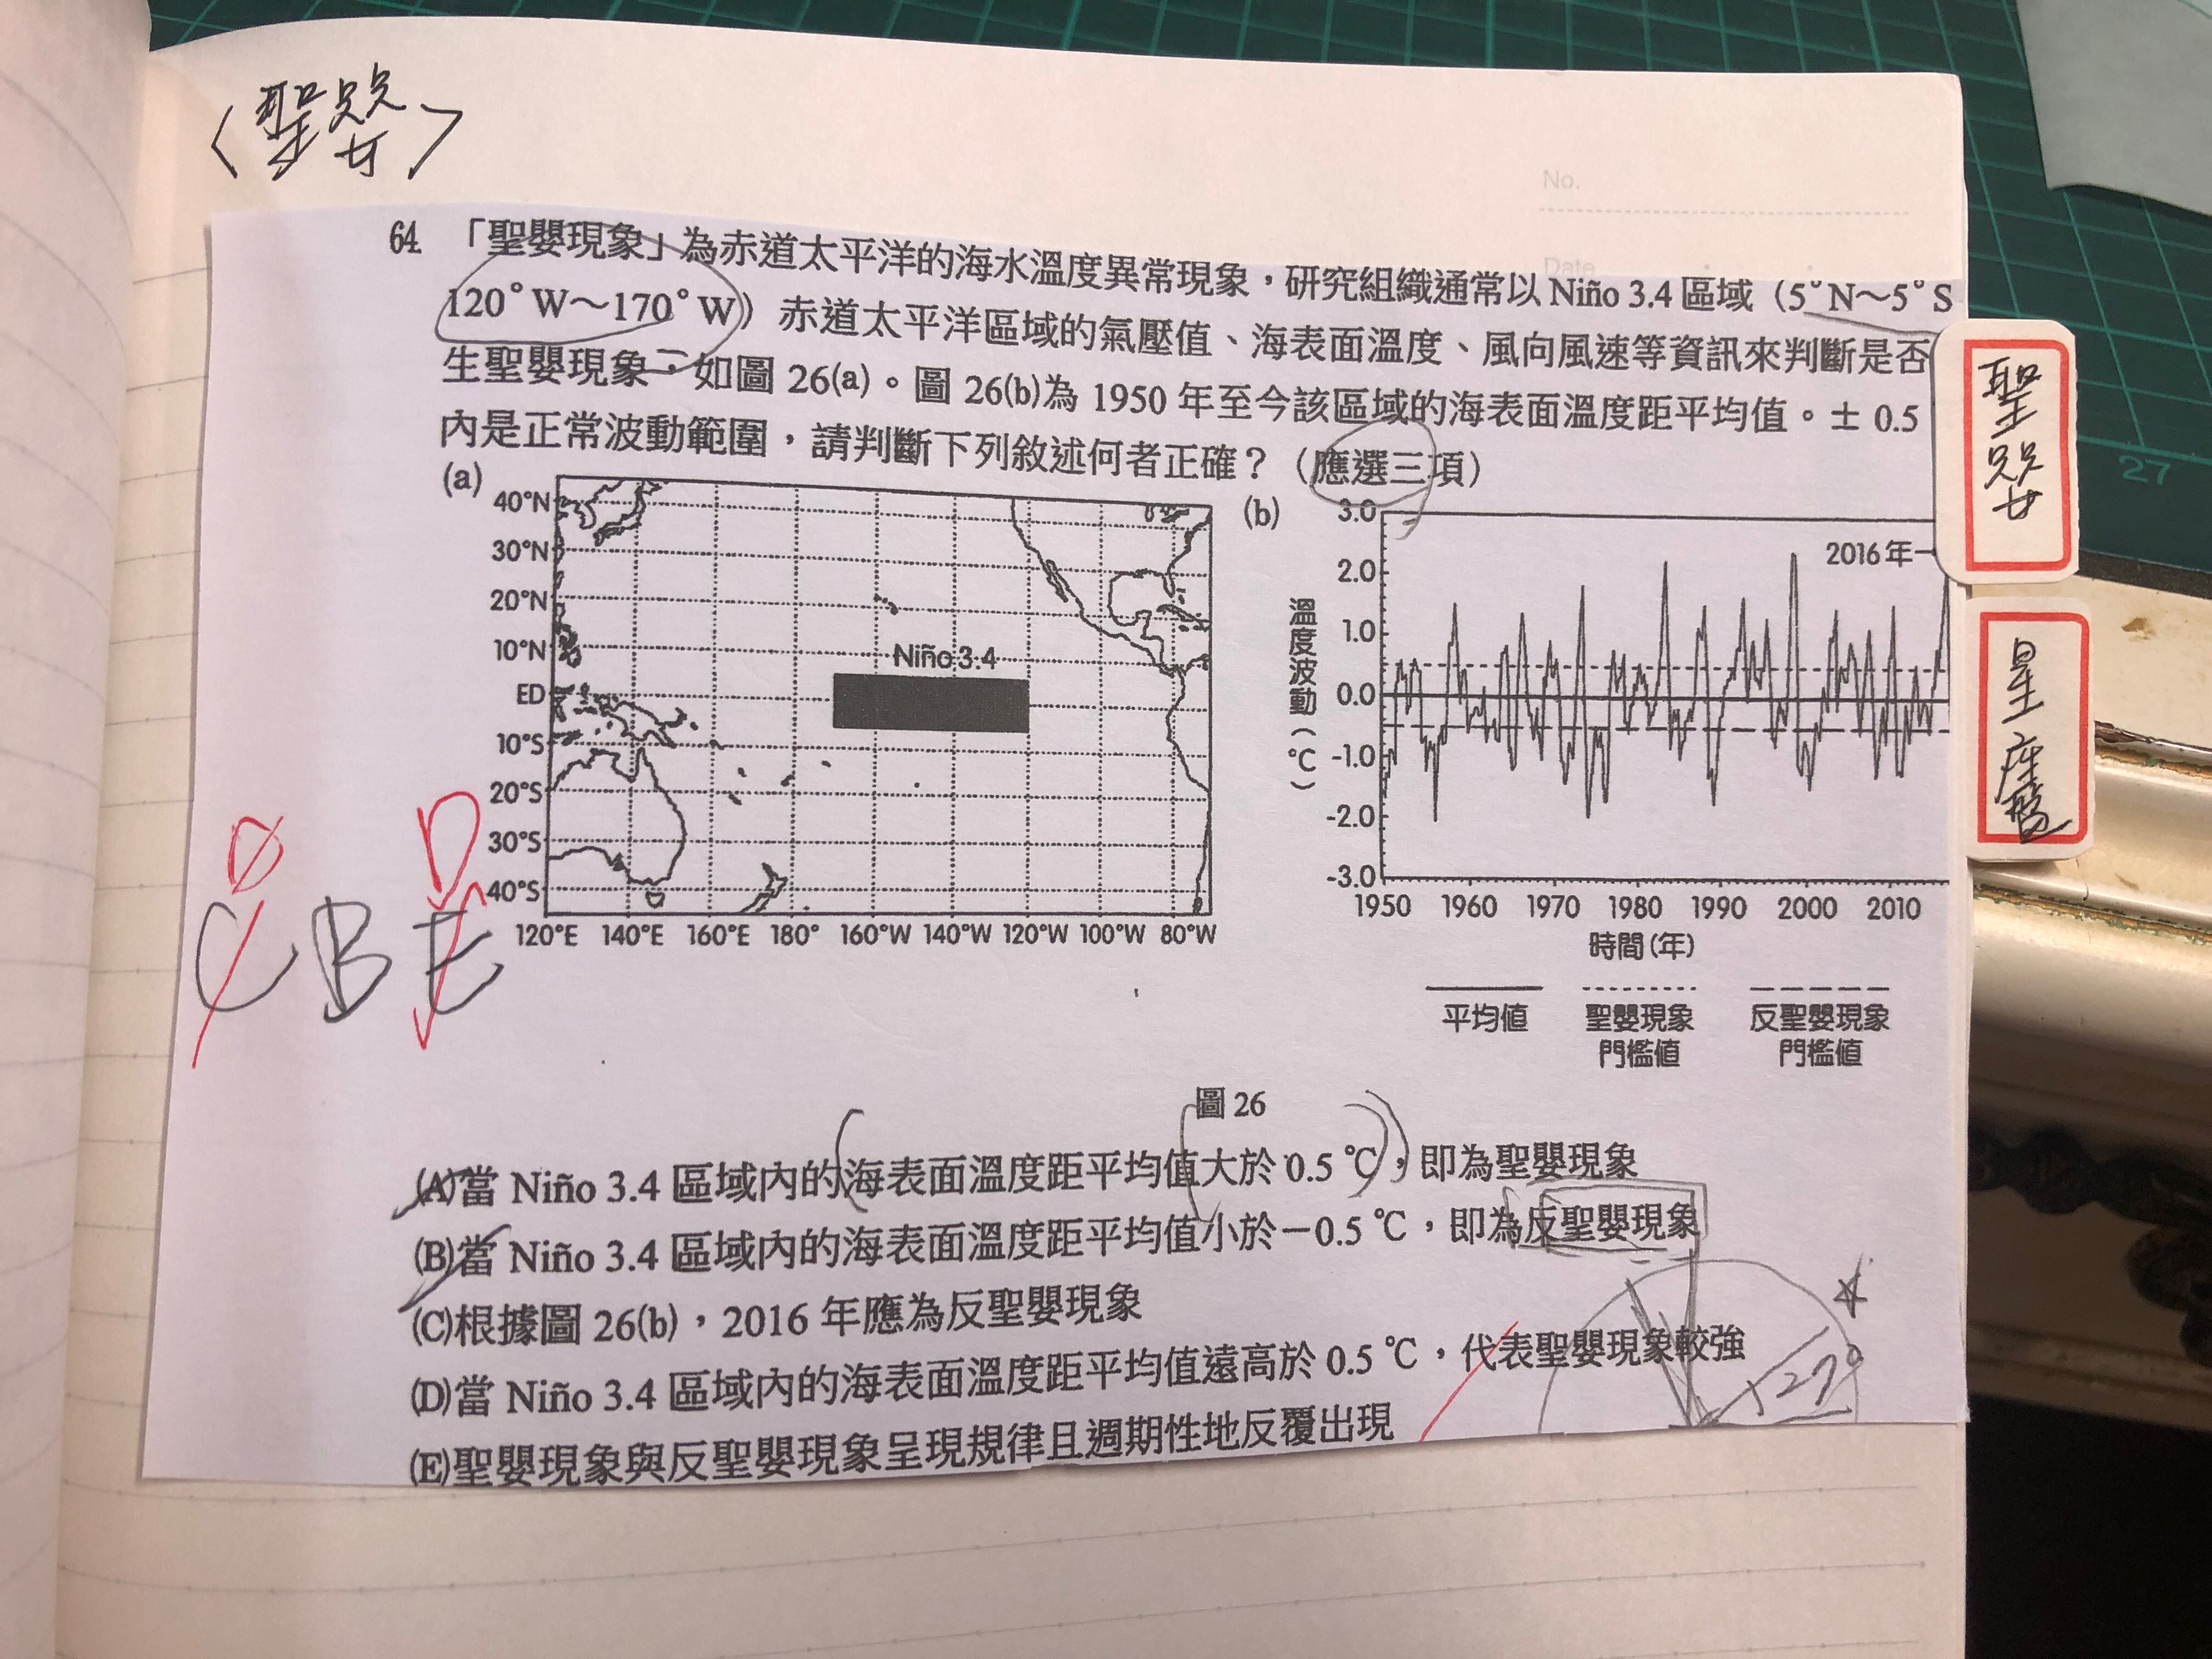 〈聖嬰〉
No.
Date
64. 「聖嬰現象」為赤道太平洋的海水溫度異常現象，研究組織通常以 Niño 3.4 區域（5°N～5°S
120°W～170°W）赤道太平洋區域的氣壓值、海表面溫度、風向風速等資訊來判斷是否
生聖嬰現象，如圖 26(a)。圖 26(b)為 1950 年至今該區域的海表面溫度距平均值。± 0.5
內是正常波動範圍，請判斷下列敘述何者正確？（應選三項）
聖嬰
星座盤
27
(a)
40°N
30°N
20°N
10°N
EQ
10°S
20°S
30°S
40°S
Niño 3.4
120°E 140°E 160°E 180° 160°W 140°W 120°W 100°W 80°W
(b)
3.0
2.0
1.0
0.0
-1.0
-2.0
-3.0
溫度波動(℃)
2016年
1950 1960 1970 1980 1990 2000 2010
時間(年)
平均值 聖嬰現象 反聖嬰現象
門檻值 門檻值
圖 26
D
C B E
(A)當 Niño 3.4 區域內的海表面溫度距平均值大於 0.5 ℃，即為聖嬰現象
(B)當 Niño 3.4 區域內的海表面溫度距平均值小於－0.5 ℃，即為反聖嬰現象
(C)根據圖 26(b)，2016 年應為反聖嬰現象
(D)當 Niño 3.4 區域內的海表面溫度距平均值遠高於 0.5 ℃，代表聖嬰現象較強
(E)聖嬰現象與反聖嬰現象呈現規律且週期性地反覆出現